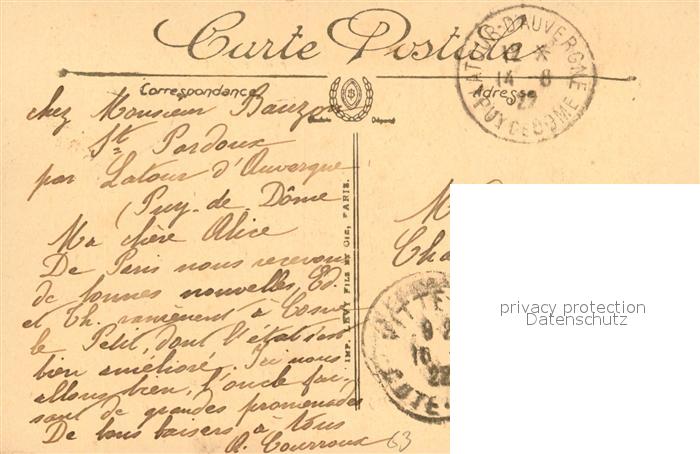 Carte Postale
Correspondance
Adresse
LATOUR-D'AUVERGNE
12 *
14 - 8
22
PUY DE DÔME
chez Monsieur Bauzon
St Pardoux
par Latour d'Auvergne
(Puy-de-Dôme
Ma chère Alice
De Paris nous recevons
de bonnes nouvelles, Ed.
et Th. ramènent à Cosne
le Petit, dont l'état s'est
bien amélioré. Ici nous
allons bien, l'oncle fai-
sant de grandes promenades
De bons baisers à tous
A. Courroux
63
IMP. LEVY FILS ET CIE, PARIS.
M
Cha
VITTE
9
16
22
CÔTE-D
privacy protection
Datenschutz